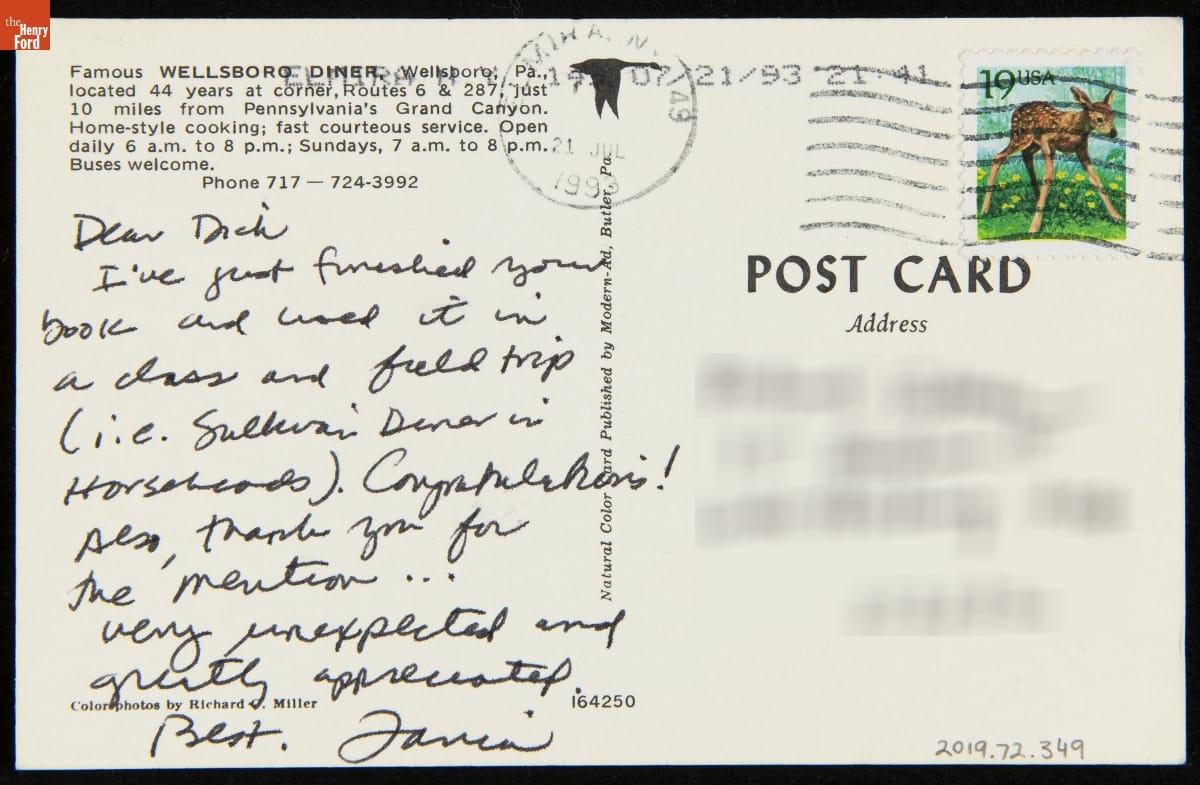 the
Henry
Ford
Famous WELLSBORO DINER, Wellsboro, Pa.,
located 44 years at corner, Routes 6 & 287, just
10 miles from Pennsylvania's Grand Canyon.
Home-style cooking; fast courteous service. Open
daily 6 a.m. to 8 p.m.; Sundays, 7 a.m. to 8 p.m.
Buses welcome.
Phone 717 — 724-3992
ELMIRA N.Y. 149 07/21/93 21:41
21 JUL
1993
19 USA
POST CARD
Address
Dear Dick
I've just finished your
book and used it in
a class and field trip
(i.e. Sullivan Diner in
Horseheads). Congratulations!
Also, thank you for
the mention ...
very unexpected and
greatly appreciated.
Best.
Natural Color Card Published by Modern-Ad, Butler, Pa.
Color photos by Richard C. Miller
164250
2019.72.349